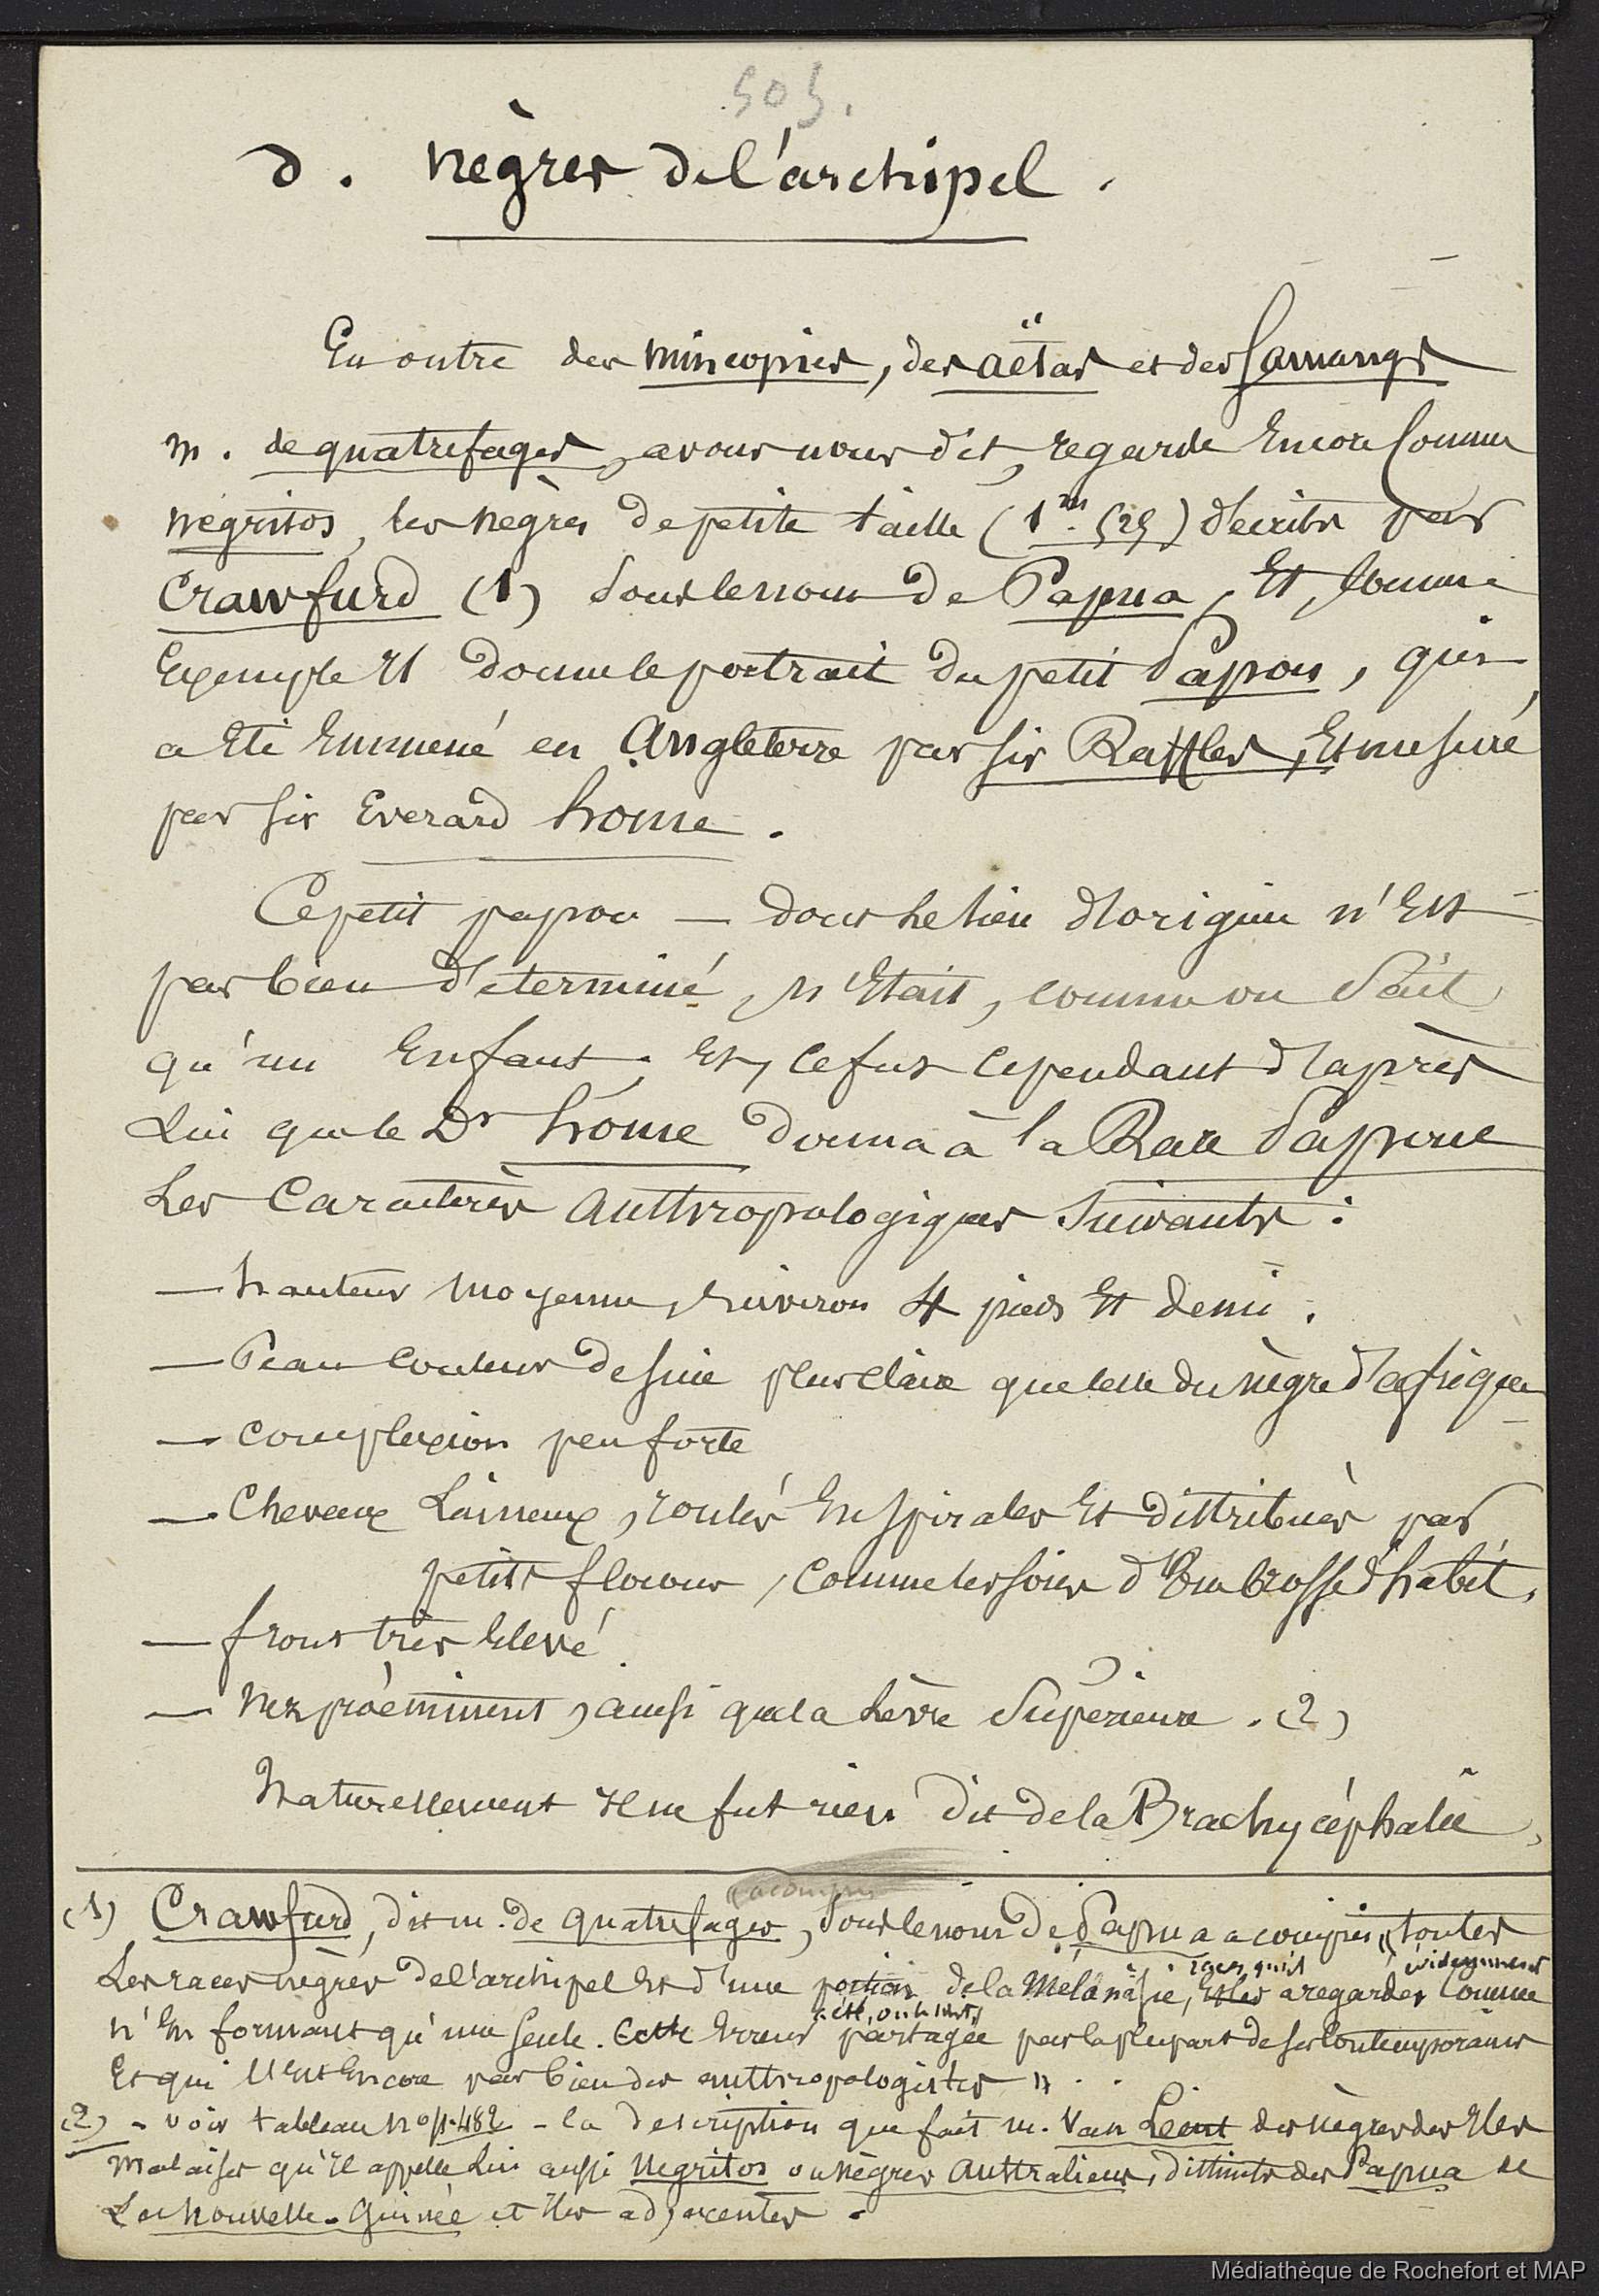 505.
d. nègres de l'archipel.
En outre des mincopies, des aëtas et des Samangs
m. de quatrefages, avons nous dit, regarde encore comme
négritos, les nègres de petite taille (1m. 525) décrits par
Crawfurd (1) sous le nom de Papua, Et, comme
Exemple Il donne le portrait du petit Papou, qui
a Eté Emmené en Angleterre par sir Raffles, Et mesuré
par sir Everard home.
Ce petit papou — dont le lieu d'origine n'Est
pas bien déterminé, n'Etait, comme on Sait
qu'un Enfant; Et, ce fut cependant d'après
Lui que le Dr home donna à la Race Papoue
Les Caractères anthropologiques Suivants :
— hauteur moyenne, Environ 4 pieds Et demi.
— Peau couleur de suie plus claire que celle du nègre d'afrique
— complexion peu forte
— Cheveux Laineux, roulés En spirales Et distribués par
petits flocons, comme les soies d'une brosse d'habit.
— front très Elevé.
— Nez proéminent, ainsi que la Lèvre Supérieure. (2)
Naturellement Il ne fut rien dit de la Brachycéphalie.
(1) Crawfurd, dit m. de quatrefages, sous le nom de Papua a compris "toutes
Les races nègres de l'archipel Et d'une portion de la Mélanésie, races qu'il a regardées évidemment comme
n'En formant qu'une seule. Cette Erreur a été, on le sait, partagée par la plupart de ses Contemporains
Et qui l'Est Encore par bien des anthropologistes".
(2) - voir tableau no p. 482 - la description que fait m. Van Leent des nègres des Iles
malaises qu'il appelle Lui aussi Negritos ou nègres Australiens, distincts des Papua de
La Nouvelle-Guinée et Iles adjacentes.
Médiathèque de Rochefort et MAP